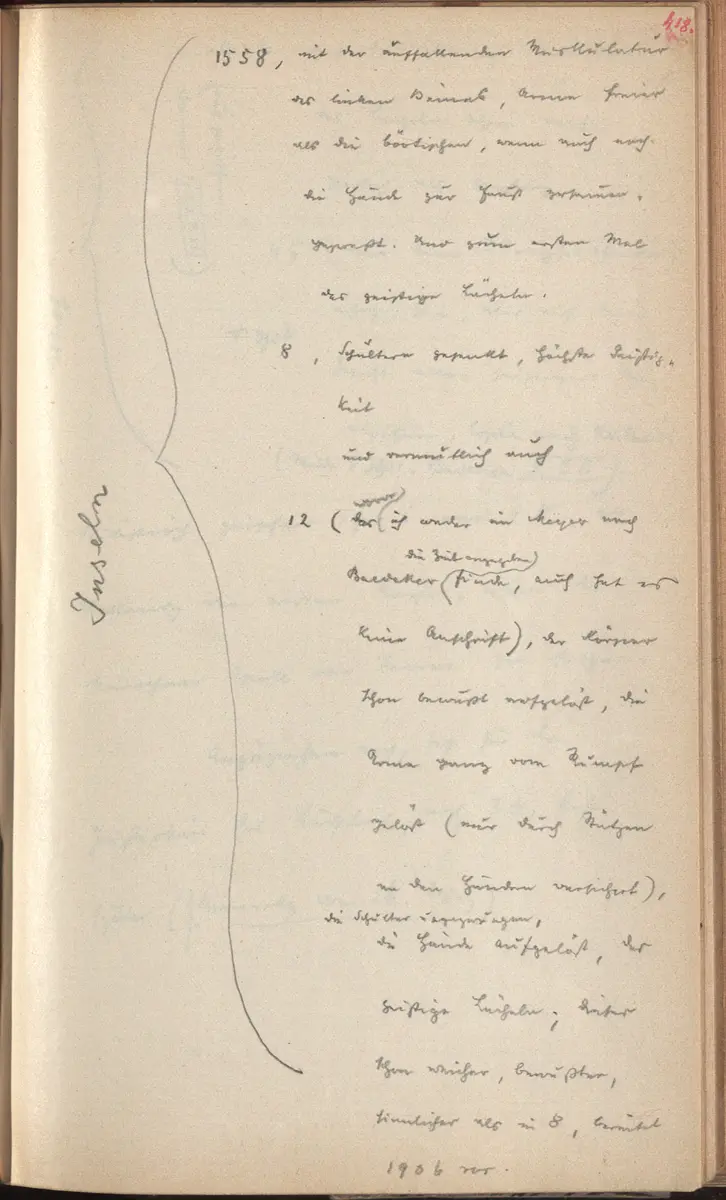 418.
1558, mit der auffallenden Muskulatur
des linken Beines, Arme freier
als die böotischen, wenn auch noch
die Hände zur Faust zusammen-
gepreßt. Und zum ersten Mal
das geistige Lächeln.
8, Schultern gesenkt, höchste Geistig-
keit
und vermutlich auch
12 (das ich weder im Meyer noch
die Zeit angegeben)
Baedeker (finde, auch hat es
keine Anschrift), der Körper
schon bewußt aufgelöst, die
Arme ganz vom Rumpf
gelöst (nur durch Stützen
an den Händen versichert),
die Schulter
die Hände aufgelöst, das
geistige Lächeln;
schon weicher, bewußter,
sinnlicher als in 8, bereitet
1906 vor.
Inseln